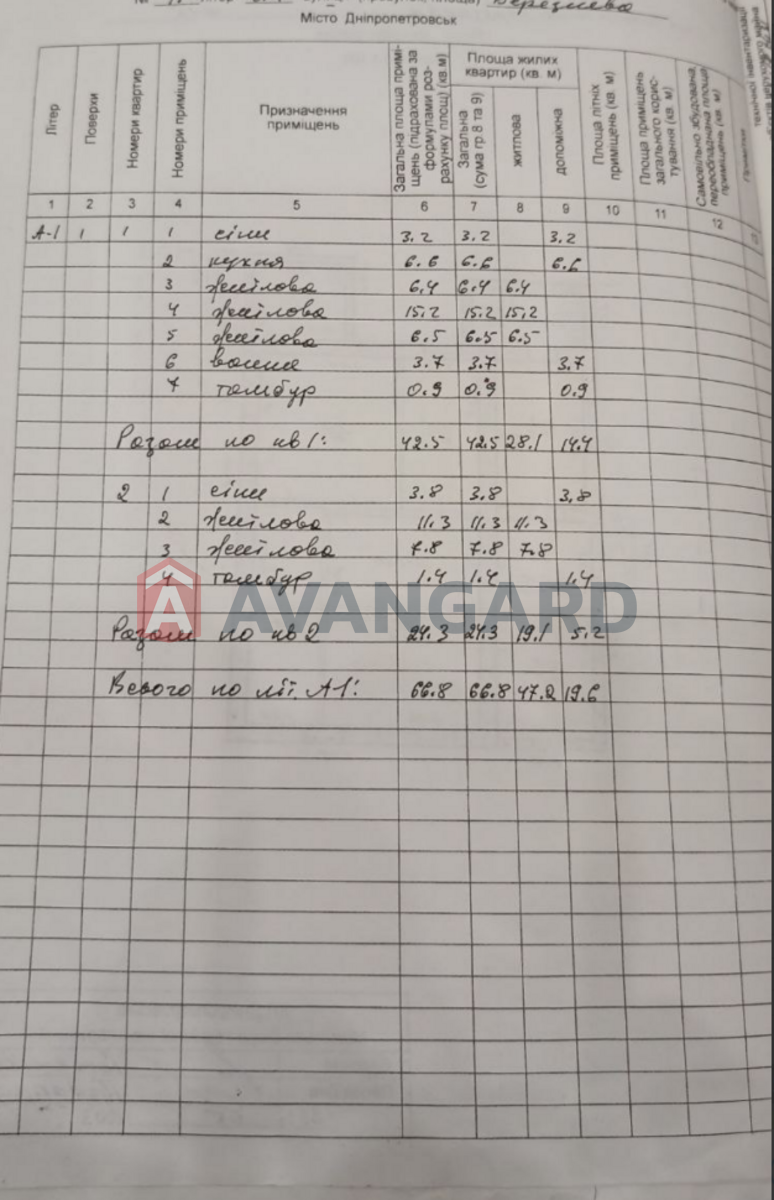 Березнева
Місто Дніпропетровськ
Літер
Поверхи
Номери квартир
Номери приміщень
Призначення приміщень
Загальна площа приміщень (підрахована за формулами розрахунку площ) (кв.м)
Площа жилих квартир (кв. м)
Загальна (сума гр.8 та 9)
житлова
допоміжна
Площа літніх приміщень (кв. м)
Площа приміщень загального користування (кв. м)
Самовільно збудована, переобладнана площа приміщень (кв. м)
Примітки
технічної інвентаризації
1 2 3 4 5 6 7 8 9 10 11 12
А-1 1 1 1 сіни 3.2 3.2 3.2
2 кухня 6.6 6.6 6.6
3 житлова 6.4 6.4 6.4
4 житлова 15.2 15.2 15.2
5 житлова 6.5 6.5 6.5
6 ванна 3.7 3.7 3.7
7 тамбур 0.9 0.9 0.9
Разом по кв 1: 42.5 42.5 28.1 14.4
2 1 сіни 3.8 3.8 3,8
2 житлова 11.3 11.3 11.3
3 житлова 7.8 7.8 7.8
4 тамбур 1.4 1.4 1.4
AVANGARD
Разом по кв 2 24.3 24.3 19.1 5.2
Всього по літ. А-1: 66.8 66.8 47.2 19.6